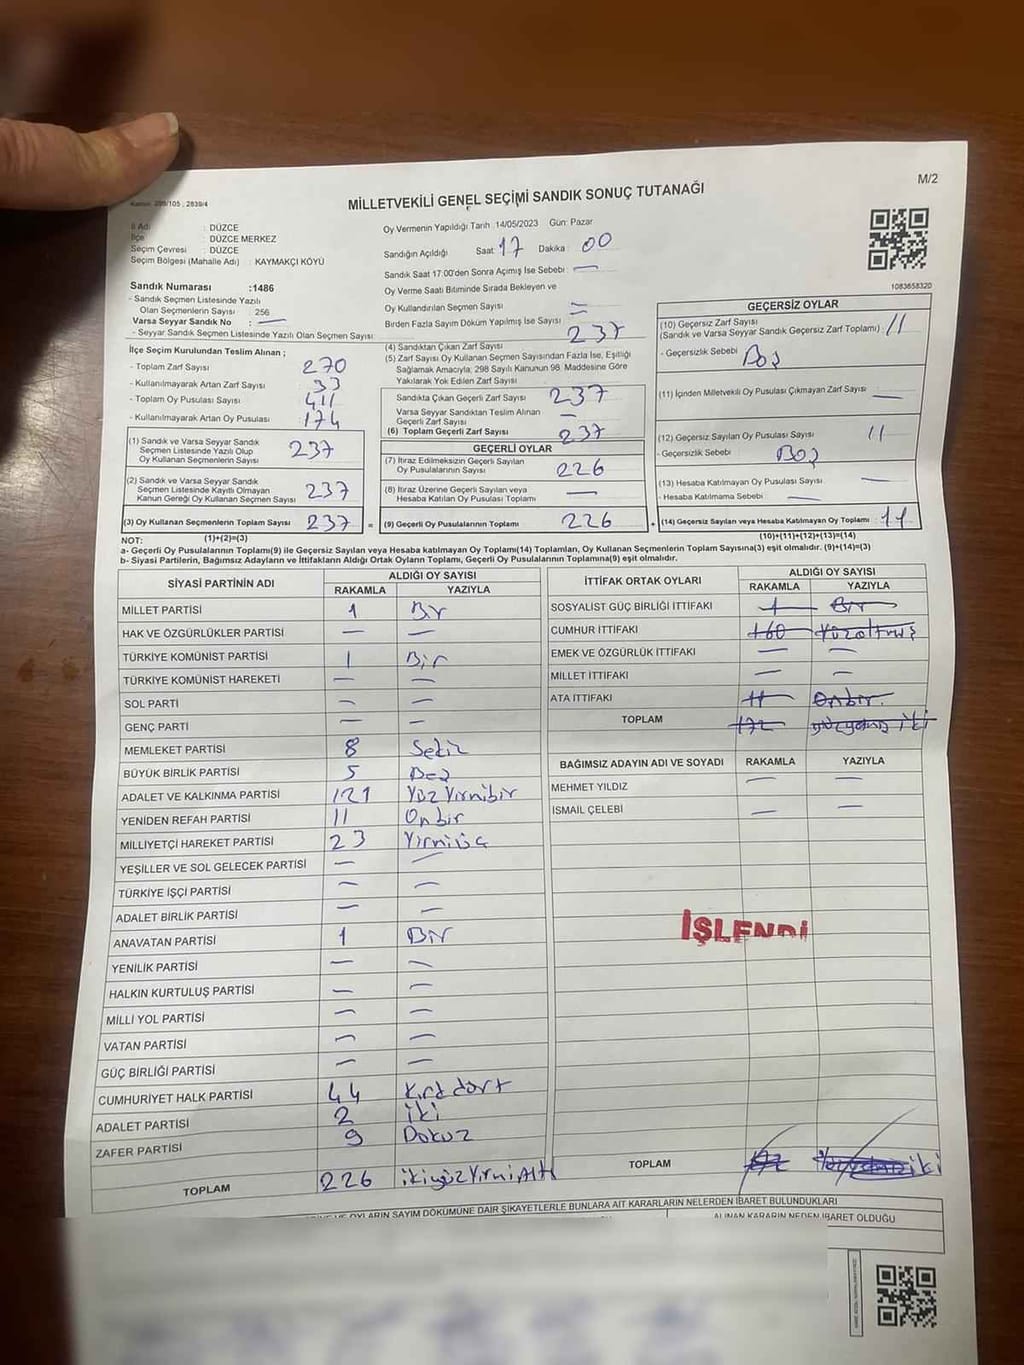 M/2
MİLLETVEKİLİ GENEL SEÇİMİ SANDIK SONUÇ TUTANAĞI
İl Adı : DÜZCE
İlçe : DÜZCE MERKEZ
Seçim Çevresi : DÜZCE
Seçim Bölgesi (Mahalle Adı) : KAYMAKÇI KÖYÜ
Sandık Numarası :1486
- Sandık Seçmen Listesinde Yazılı
Olan Seçmenlerin Sayısı : 256
Varsa Seyyar Sandık No : —
- Seyyar Sandık Seçmen Listesinde Yazılı Olan Seçmen Sayısı
İlçe Seçim Kurulundan Teslim Alınan ;
- Toplam Zarf Sayısı 270
- Kullanılmayarak Artan Zarf Sayısı 33
- Toplam Oy Pusulası Sayısı 411
- Kullanılmayarak Artan Oy Pusulası 174
(1) Sandık ve Varsa Seyyar Sandık
Seçmen Listesinde Yazılı Olup
Oy Kullanan Seçmenlerin Sayısı 237
(2) Sandık ve Varsa Seyyar Sandık
Seçmen Listesinde Kayıtlı Olmayan
Kanun Gereği Oy Kullanan Seçmen Sayısı 237
(3) Oy Kullanan Seçmenlerin Toplam Sayısı 237 =
Oy Vermenin Yapıldığı Tarih :14/05/2023 Gün: Pazar
Sandığın Açıldığı Saat: 17 Dakika : 00
Sandık Saat 17:00'den Sonra Açımış İse Sebebi : —
Oy Verme Saati Bitiminde Sırada Bekleyen ve
Oy Kullandırılan Seçmen Sayısı —
Birden Fazla Sayım Döküm Yapılmış İse Sayısı —
(4) Sandıktan Çıkan Zarf Sayısı 237
(5) Zarf Sayısı Oy Kullanan Seçmen Sayısından Fazla İse, Eşitliği
Sağlamak Amacıyla; 298 Sayılı Kanunun 98. Maddesine Göre
Yakılarak Yok Edilen Zarf Sayısı
Sandıkta Çıkan Geçerli Zarf Sayısı 237
Varsa Seyyar Sandıktan Teslim Alınan
Geçerli Zarf Sayısı —
(6) Toplam Geçerli Zarf Sayısı 237
GEÇERLİ OYLAR
(7) İtiraz Edilmeksizin Geçerli Sayılan
Oy Pusulalarının Sayısı 226
(8) İtiraz Üzerine Geçerli Sayılan veya
Hesaba Katılan Oy Pusulaları Toplamı —
(9) Geçerli Oy Pusulalarının Toplamı 226 +
1083658320
GEÇERSİZ OYLAR
(10) Geçersiz Zarf Sayısı
(Sandık ve Varsa Seyyar Sandık Geçersiz Zarf Toplamı) : 11
- Geçersizlik Sebebi Boş
(11) İçinden Milletvekili Oy Pusulası Çıkmayan Zarf Sayısı —
(12) Geçersiz Sayılan Oy Pusulası Sayısı 11
- Geçersizlik Sebebi Boş
(13) Hesaba Katılmayan Oy Pusulası Sayısı —
- Hesaba Katılmama Sebebi —
(14) Geçersiz Sayılan veya Hesaba Katılmayan Oy Toplamı : 11
NOT: (1)+(2)=(3) (10)+(11)+(12)+(13)=(14)
a- Geçerli Oy Pusulalarının Toplamı(9) ile Geçersiz Sayılan veya Hesaba katılmayan Oy Toplamı(14) Toplamları, Oy Kullanan Seçmenlerin Toplam Sayısına(3) eşit olmalıdır. (9)+(14)=(3)
b- Siyasi Partilerin, Bağımsız Adayların ve İttifakların Aldığı Ortak Oyların Toplamı, Geçerli Oy Pusulalarının Toplamına(9) eşit olmalıdır.
SİYASİ PARTİNİN ADI ALDIĞI OY SAYISI
RAKAMLA YAZIYLA
MİLLET PARTİSİ 1 Bir
HAK VE ÖZGÜRLÜKLER PARTİSİ — —
TÜRKİYE KOMÜNİST PARTİSİ 1 Bir
TÜRKİYE KOMÜNİST HAREKETİ — —
SOL PARTİ — —
GENÇ PARTİ — —
MEMLEKET PARTİSİ 8 Sekiz
BÜYÜK BİRLİK PARTİSİ 5 Beş
ADALET VE KALKINMA PARTİSİ 121 Yüz Yirmibir
YENİDEN REFAH PARTİSİ 11 Onbir
MİLLİYETÇİ HAREKET PARTİSİ 23 Yirmiüç
YEŞİLLER VE SOL GELECEK PARTİSİ — —
TÜRKİYE İŞÇİ PARTİSİ — —
ADALET BİRLİK PARTİSİ — —
ANAVATAN PARTİSİ 1 Bir
YENİLİK PARTİSİ — —
HALKIN KURTULUŞ PARTİSİ — —
MİLLİ YOL PARTİSİ — —
VATAN PARTİSİ — —
GÜÇ BİRLİĞİ PARTİSİ — —
CUMHURİYET HALK PARTİSİ 44 Kırk dört
ADALET PARTİSİ 2 iki
ZAFER PARTİSİ 9 Dokuz
TOPLAM 226 ikiyüzYirmiAltı
İTTİFAK ORTAK OYLARI ALDIĞI OY SAYISI
RAKAMLA YAZIYLA
SOSYALİST GÜÇ BİRLİĞİ İTTİFAKI 1 Bir
CUMHUR İTTİFAKI 160 Yüzaltmış
EMEK VE ÖZGÜRLÜK İTTİFAKI — —
MİLLET İTTİFAKI — —
ATA İTTİFAKI 11 Onbir.
TOPLAM 172 yüzyetmiş iki
BAĞIMSIZ ADAYIN ADI VE SOYADI RAKAMLA YAZIYLA
MEHMET YILDIZ — —
İSMAİL ÇELEBİ — —
İŞLENDİ
TOPLAM
OYLARIN SAYIM DÖKÜMÜNE DAİR ŞİKAYETLERLE BUNLARA AİT KARARLARIN NELERDEN İBARET BULUNDUKLARI
ALINAN KARARIN NEDEN İBARET OLDUĞU